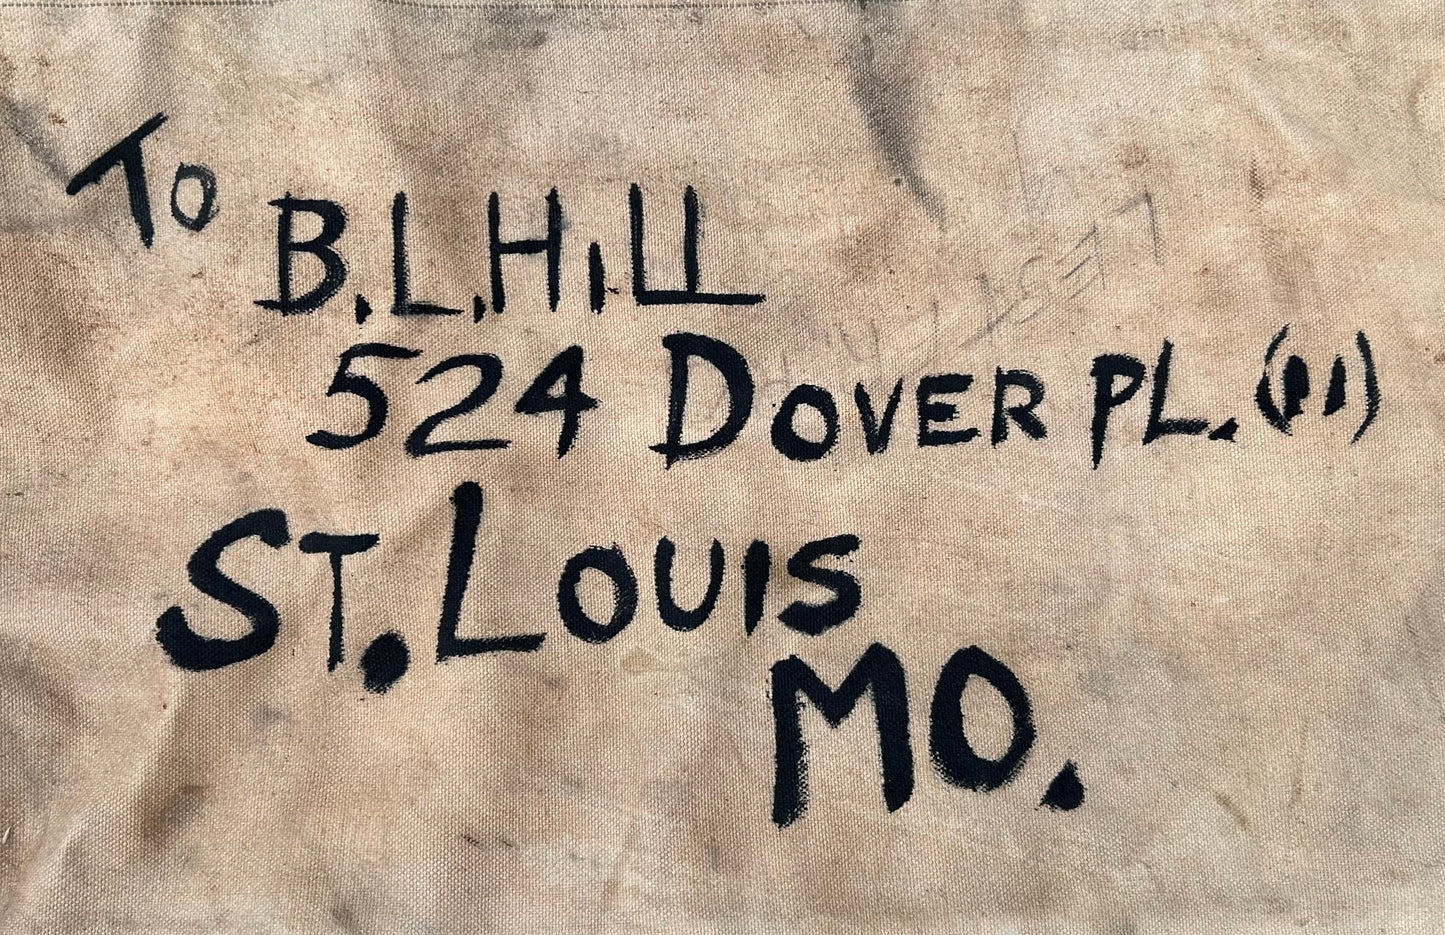 To B.L.Hill
524 DOVER PL. (11)
ST. LOUIS
MO.